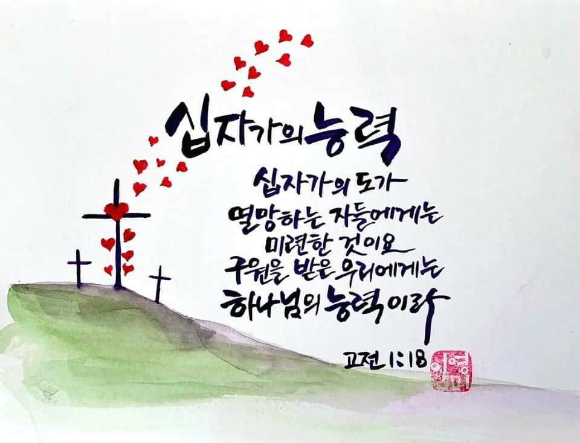 십자가의 능력
십자가의 도가
멸망하는 자들에게는
미련한 것이요
구원을 받은 우리에게는
하나님의 능력이라
고전 1:18